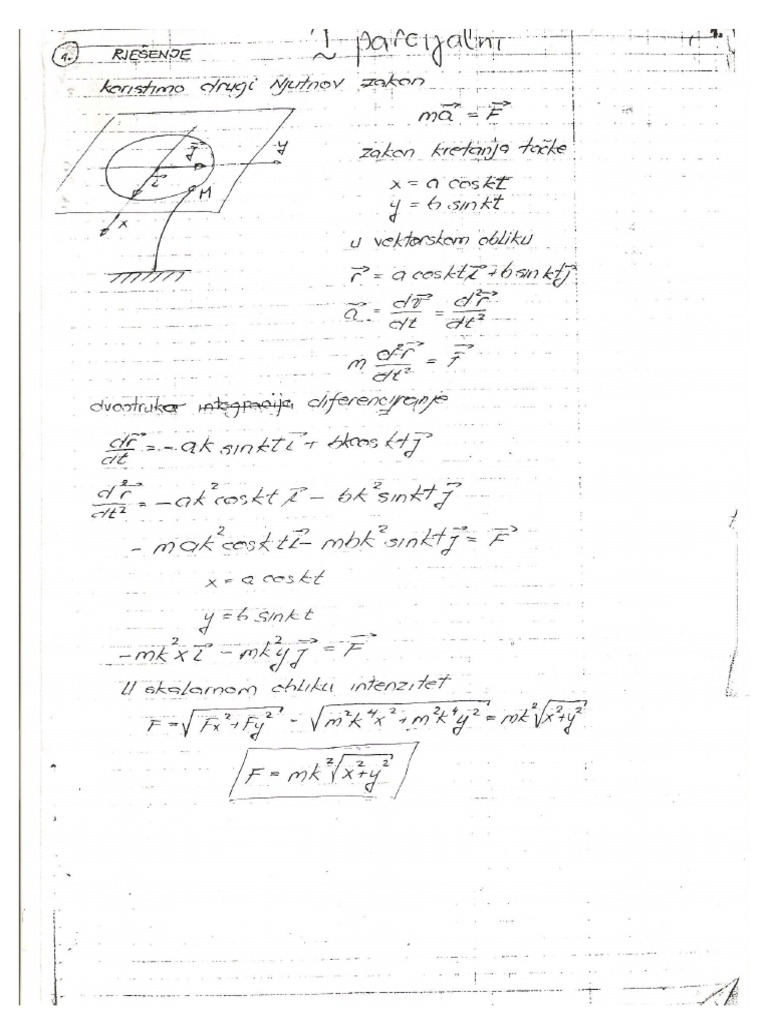 I parcijalni
1.
1. RJEŠENJE
koristimo drugi Njutnov zakon
m\vec{a} = \vec{F}
y
\vec{j}
\vec{i}
M
x
zakon kretanja tačke
x = a coskt
y = b sinkt
u vektorskom obliku
\vec{r} = a coskt\vec{i} + b sinkt\vec{j}
\vec{a} = \frac{d\vec{v}}{dt} = \frac{d^2\vec{r}}{dt^2}
m \frac{d^2\vec{r}}{dt^2} = \vec{F}
dvostruko integracija diferenciranje
\frac{d\vec{r}}{dt} = -ak sinkt\vec{i} + bkcoskt\vec{j}
\frac{d^2\vec{r}}{dt^2} = -ak^2coskt\vec{i} - bk^2sinkt\vec{j}
-mak^2coskt\vec{i} - mbk^2sinkt\vec{j} = \vec{F}
x = a coskt
y = b sinkt
-mk^2x\vec{i} - mk^2y\vec{j} = \vec{F}
U skalarnom obliku intenzitet
F = \sqrt{Fx^2 + Fy^2} - \sqrt{m^2k^4x^2 + m^2k^4y^2} = mk^2\sqrt{x^2+y^2}
F = mk^2\sqrt{x^2+y^2}